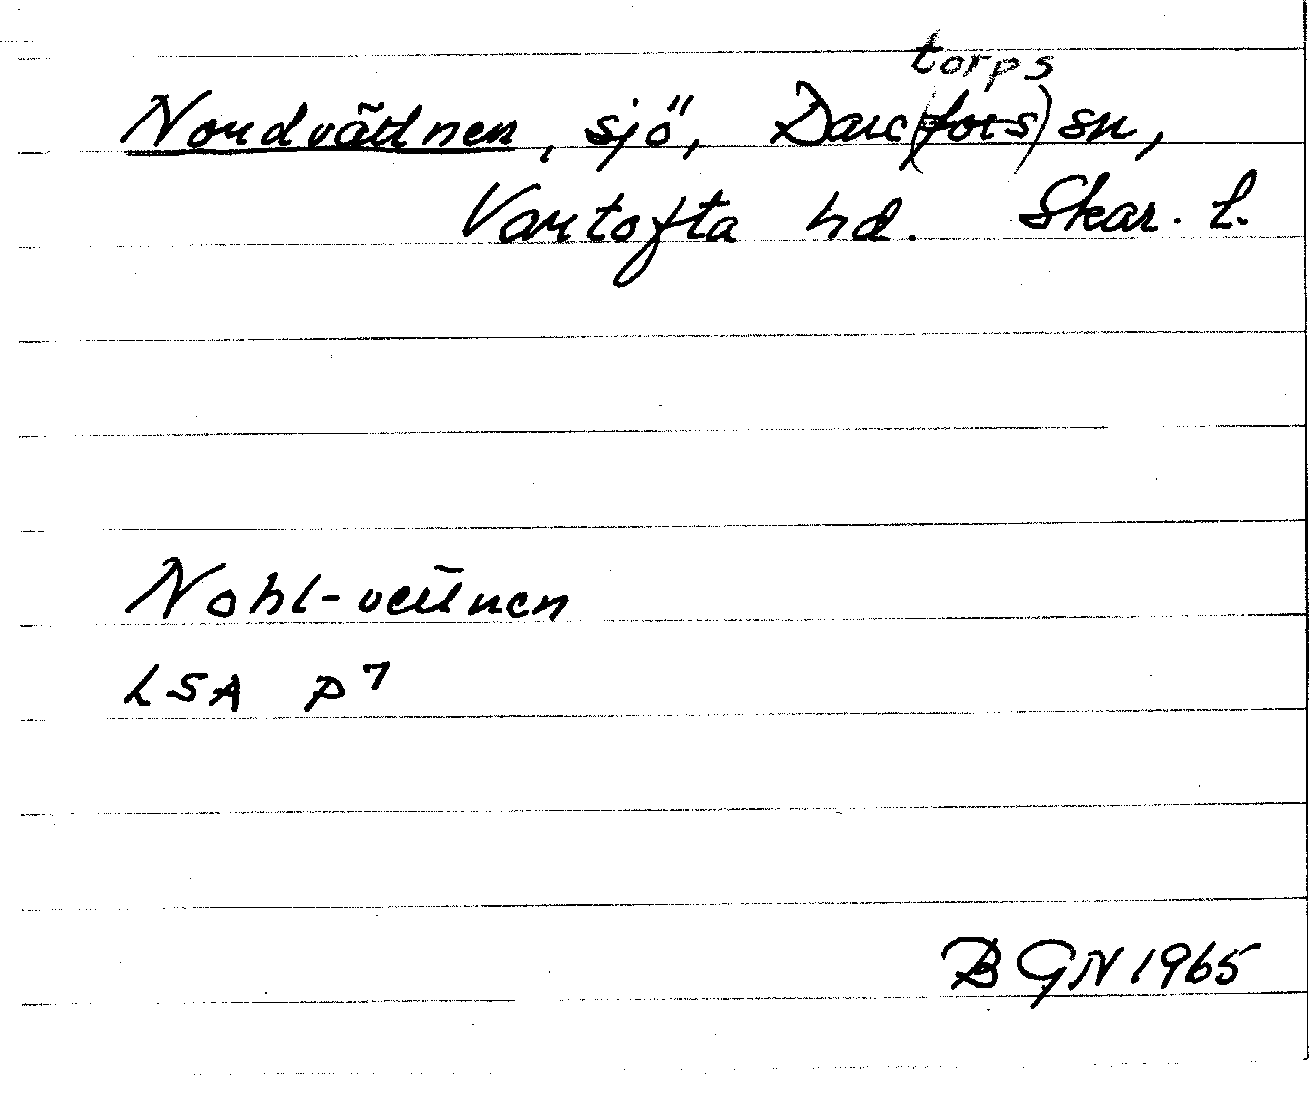 torps
Nordvättnen, sjö, Dare(fors) sn,
Vartofta hd. Skar. l.
Nohl-vettnen
LSA P7
B GN 1965